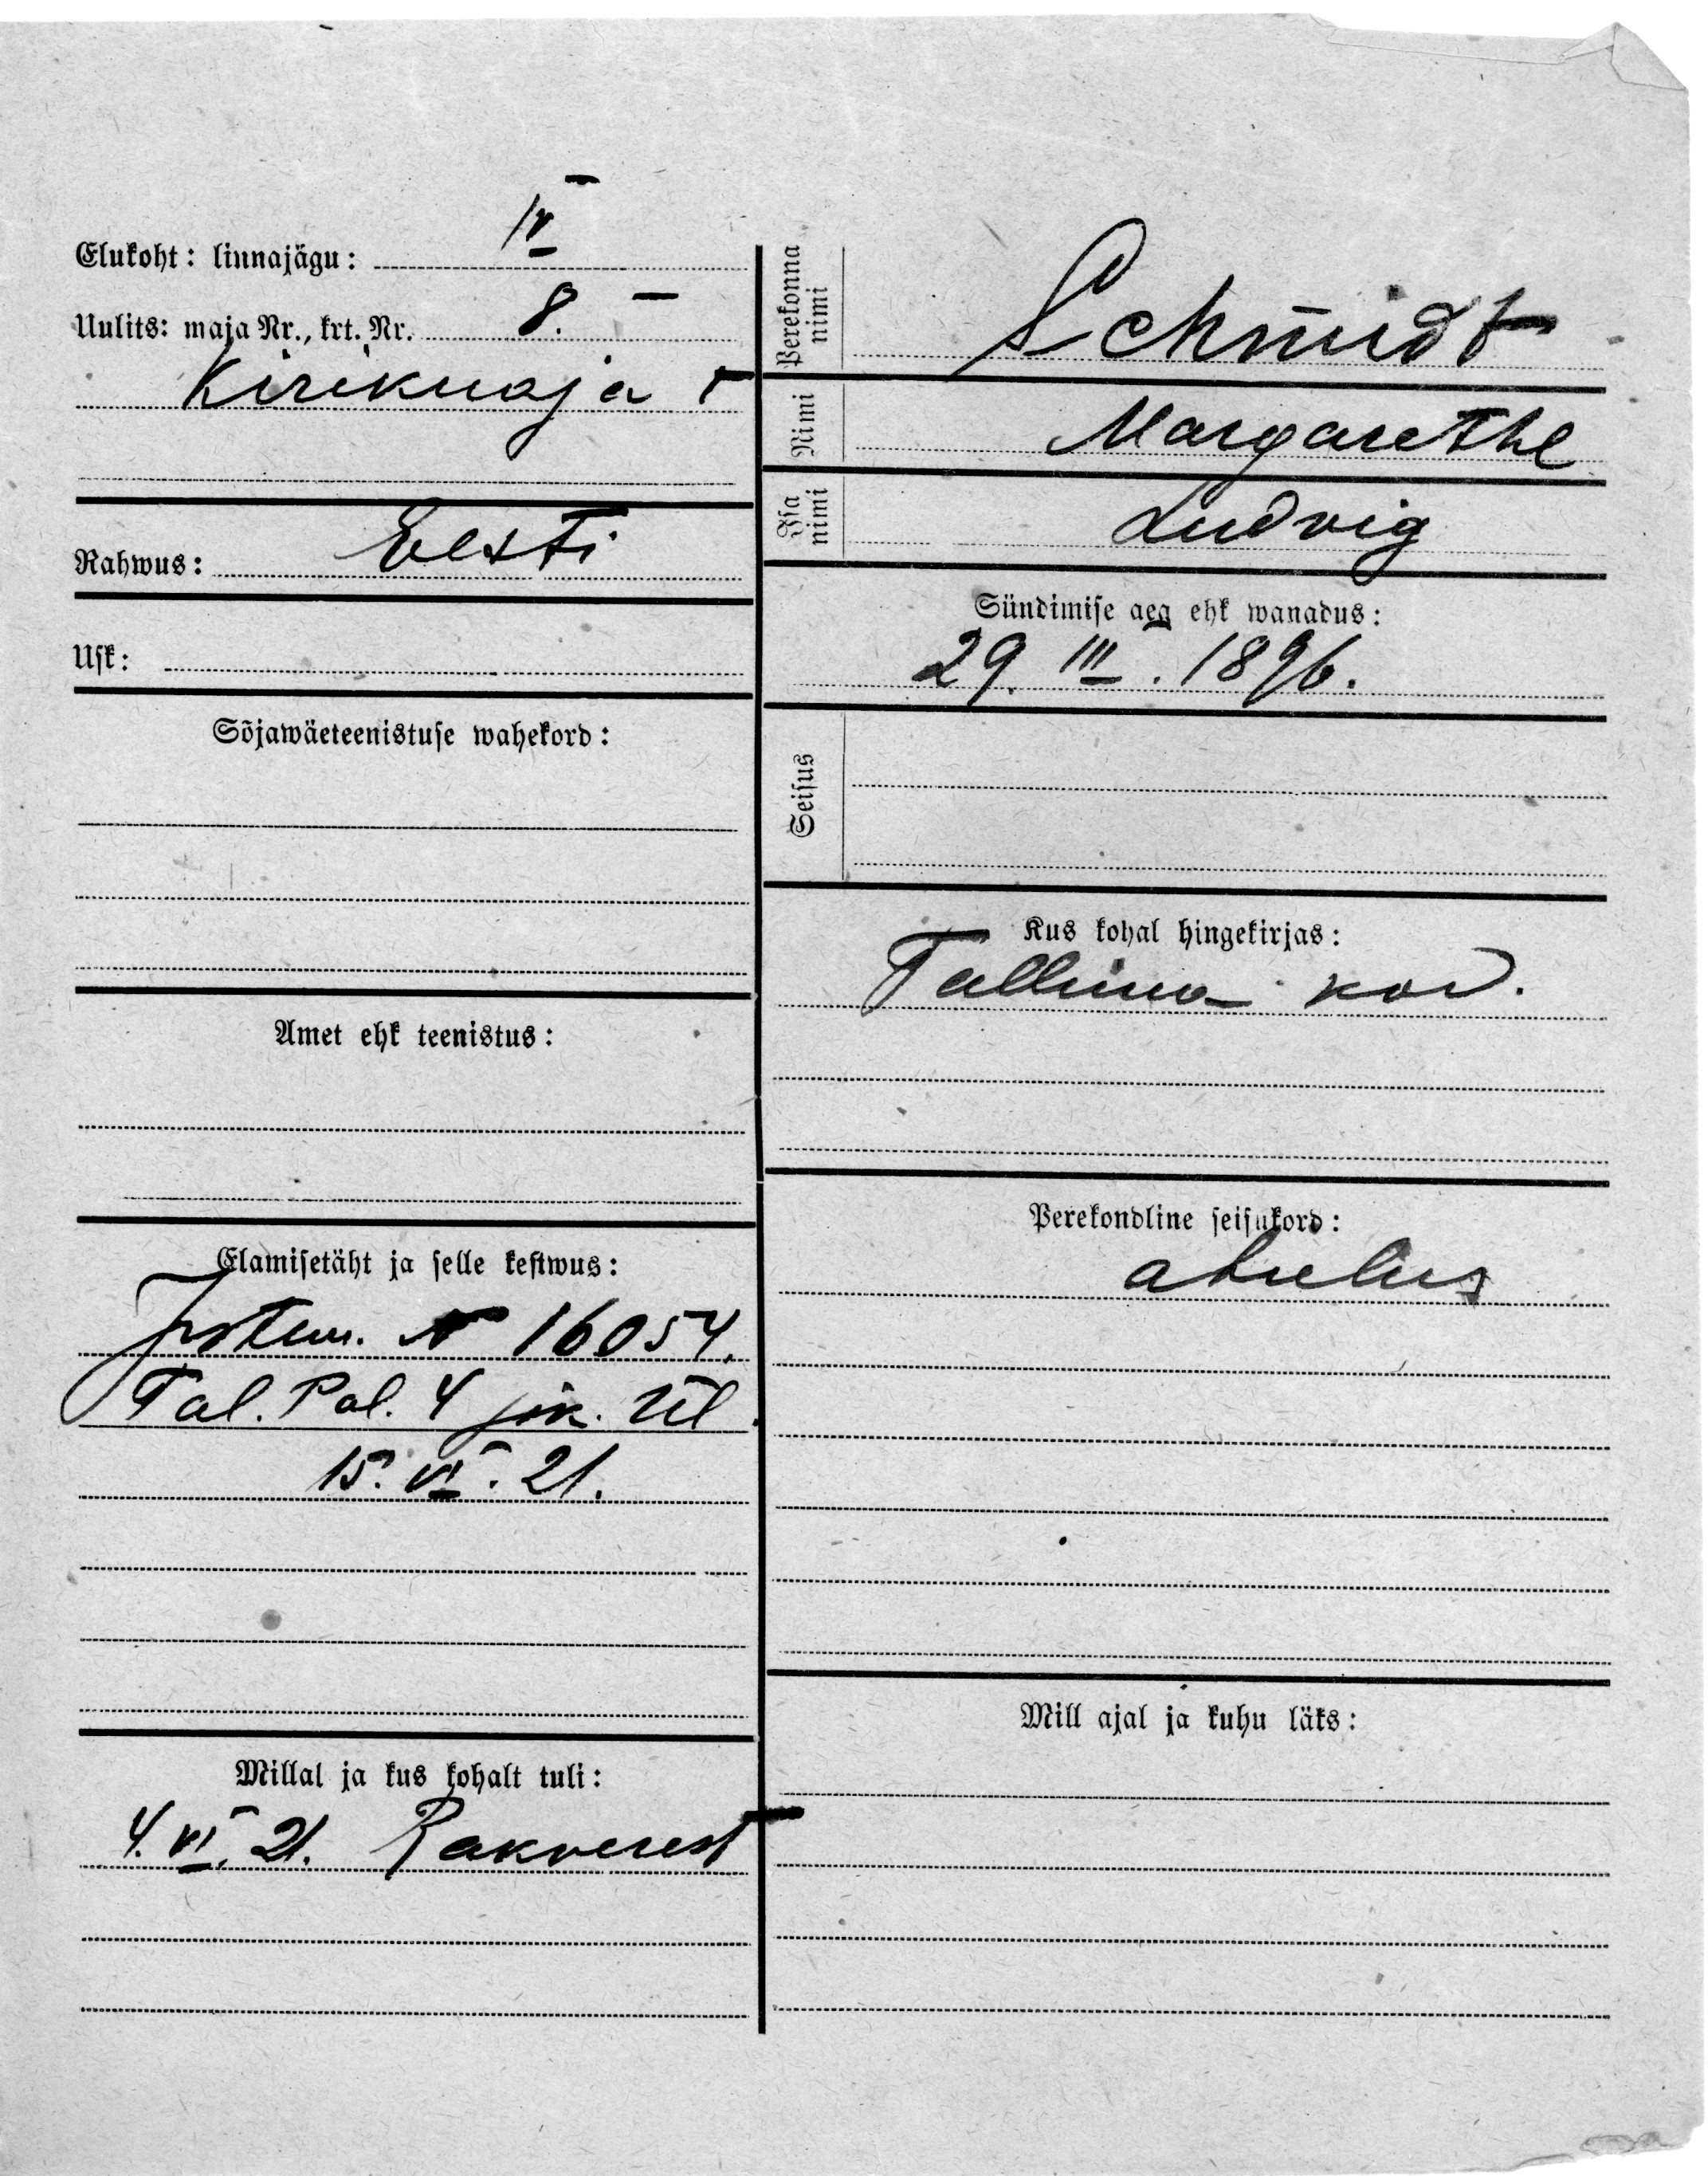 Elukoht: linnajägu: IV
Uulits: maja Nr., krt. Nr. 8. —
Kirikuaja t
Rahwus: Eesti
Usk:
Sõjawäeteenistuse wahekord:
Amet ehk teenistus:
Elamisetäht ja selle kestwus:
№ 16054.
Tal. Pol. 4 jsk. ül.
15. VI. 21.
Millal ja kus kohalt tuli:
4. VI. 21. Rakverest
Perekonna nimi Schmidt
Nimi Margarethe
Isa nimi Ludvig
Sündimise aeg ehk wanadus:
29. III. 1896.
Seisus
Kus kohal hingekirjas:
Tallinna kod.
Perekondline seisukord:
abielus
Mill ajal ja kuhu läks: